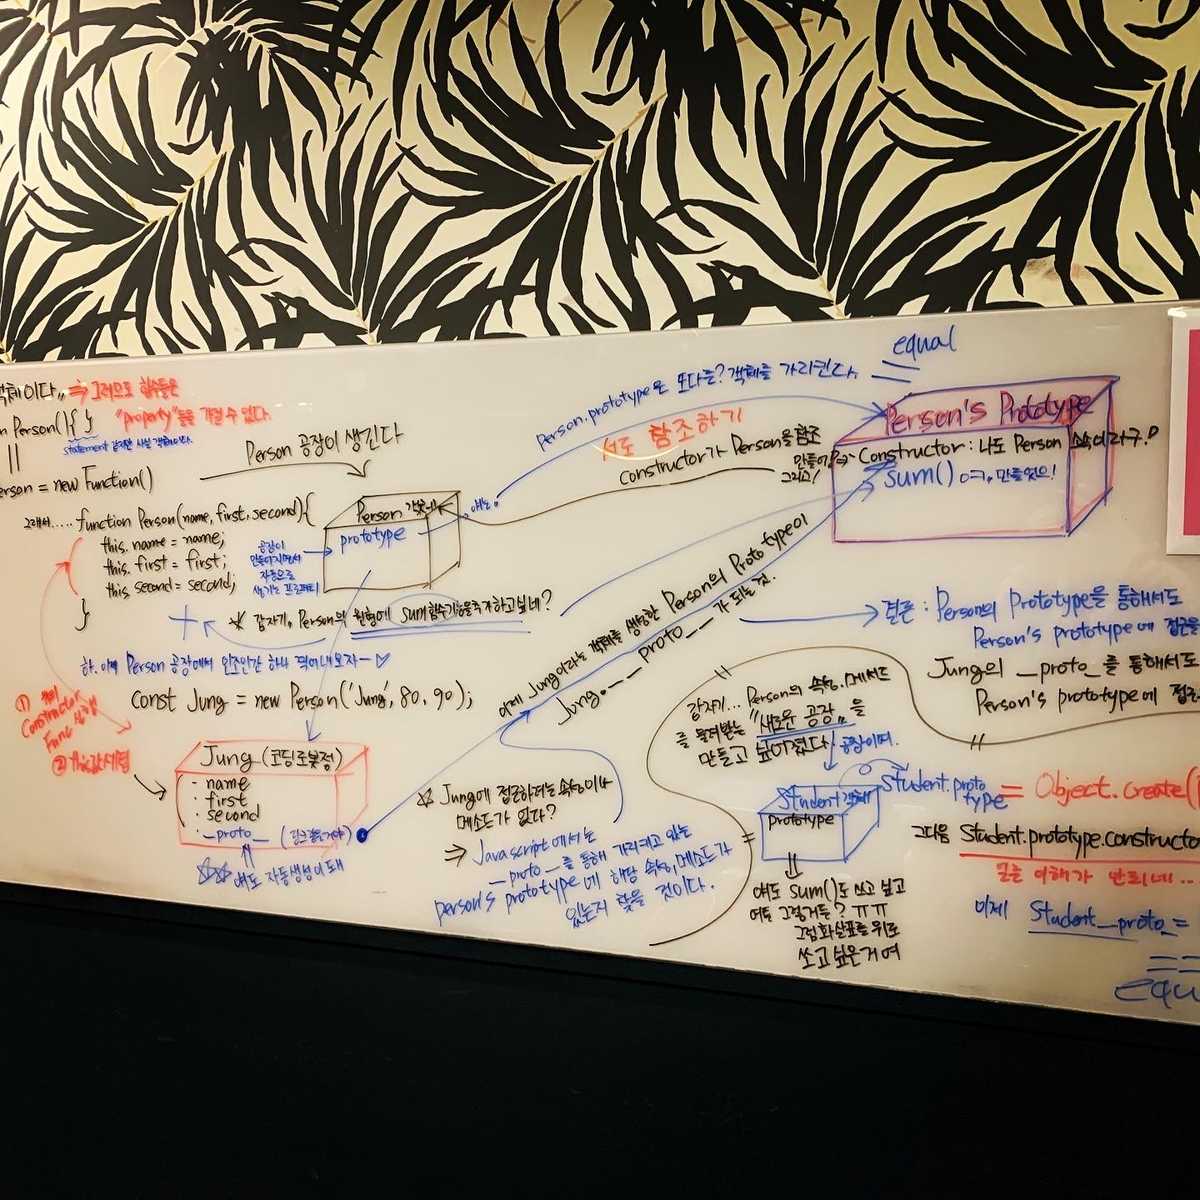 객체이다,, ⇒ 그러므로 함수들은
"Property"들을 가질 수 있다.
n Person(){ }
statement 같지만 사실 객체이다.
erson = new Function()
Person 공장이 생긴다
그래서..... function Person(name, first, second){
this.name = name;
this.first = first;
this.second = second;
}
공장이
만들어지면서
자동으로
생기는 프로퍼티
Person
prototype
얘는.
Person.prototype은 또다른? 객체를 가리킨다.
equal
서로 참조하기
Constructor가 Person을 참조
Person's Prototype
Constructor : 나도 Person 속이라구.!
sum() 여기. 만들었으!
☆ 갑자기, Person의 원형에 sum함수기능을 추가하고싶네?
하. 이제 Person 공장에서 인조인간 하나 찍어내보자~
const Jung = new Person('Jung', 80, 90);
①
Constructor
Func 실행
② this값 세팅
Jung (코딩로봇정)
· name
· first
· second
· __proto__
☆☆ 얘도 자동생성이 돼
이제 Jung이라는 객체를 생성한 Person의 Prototype이
Jung.__proto__가 되는 것.
☆ Jung에 접근하려는 속성이나
메소드가 없다?
⇒ Javascript에서는
__proto__를 통해 가리키고 있는
person's prototype에 해당 속성,메소드가
있는지 찾을 것이다.
결론 : Person의 Prototype을 통해서도
Person's prototype에 접근을
Jung의 __proto__를 통해서도
Person's prototype에 접근
갑자기... Person의 속성,메서드
를 물려받는 "새로운 공장,, 을
만들고 싶어졌다
공장이여.
Student 객체
prototype
Student.proto
type = Object.create(
그다음 Student.prototype.constructo
이해가 안되네..
이제 Student.__proto__ =
얘도 sum()도 쓰고 싶고
그렇거든? ㅠㅠ
그럼 화살표를 위로
쏘고 싶은거여
equ